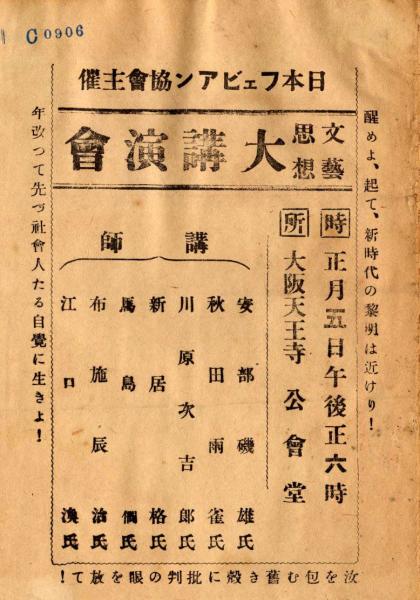 C0906
日本フェビアン協會主催
文藝
思想
大講演會
醒めよ、起て、新時代の黎明は近けり!
時 正月五日午後正六時
所 大阪天王寺 公會堂
講師
安部磯雄氏
秋田雨雀氏
川原次吉郎氏
新居格氏
馬島僩氏
布施辰治氏
江口渙氏
年改つて先づ社會人たる自覺に生きよ!
汝を包む舊き殻に批判の眼を放て!